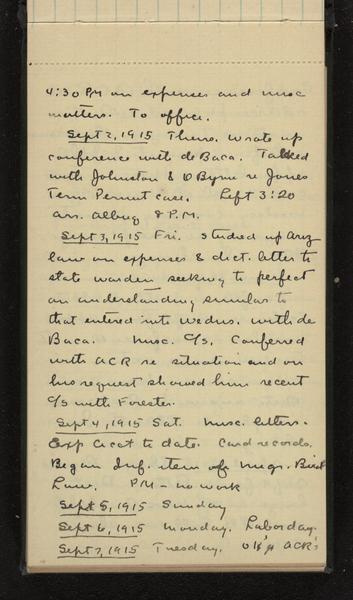 4:30 PM on expenses and misc
matters. To office.
Sept 2, 1915 Thurs. Wrote up
conference with de Baca. Talked
with Johnston & O Byrne re Jones
Term Permit case. Left 3:20
arr. Albuq 8 P.M.
Sept 3, 1915 Fri. Studied up Ariz
law on expenses & dict. letter to
state warden seeking to perfect
an understanding similar to
that entered into Wednes. with de
Baca. Misc. C/s. Conferred
with ACR re situation and on
his request showed him recent
C/s with Forester.
Sept 4, 1915 Sat. Misc. letters.
Exp Acct to date. Card records.
Began Inf. item of Migr. Bird
Law. PM - no work
Sept 5, 1915 Sunday
Sept 6, 1915 Monday. Labor day.
Sept 7, 1915 Tuesday. Ok'd ACR's